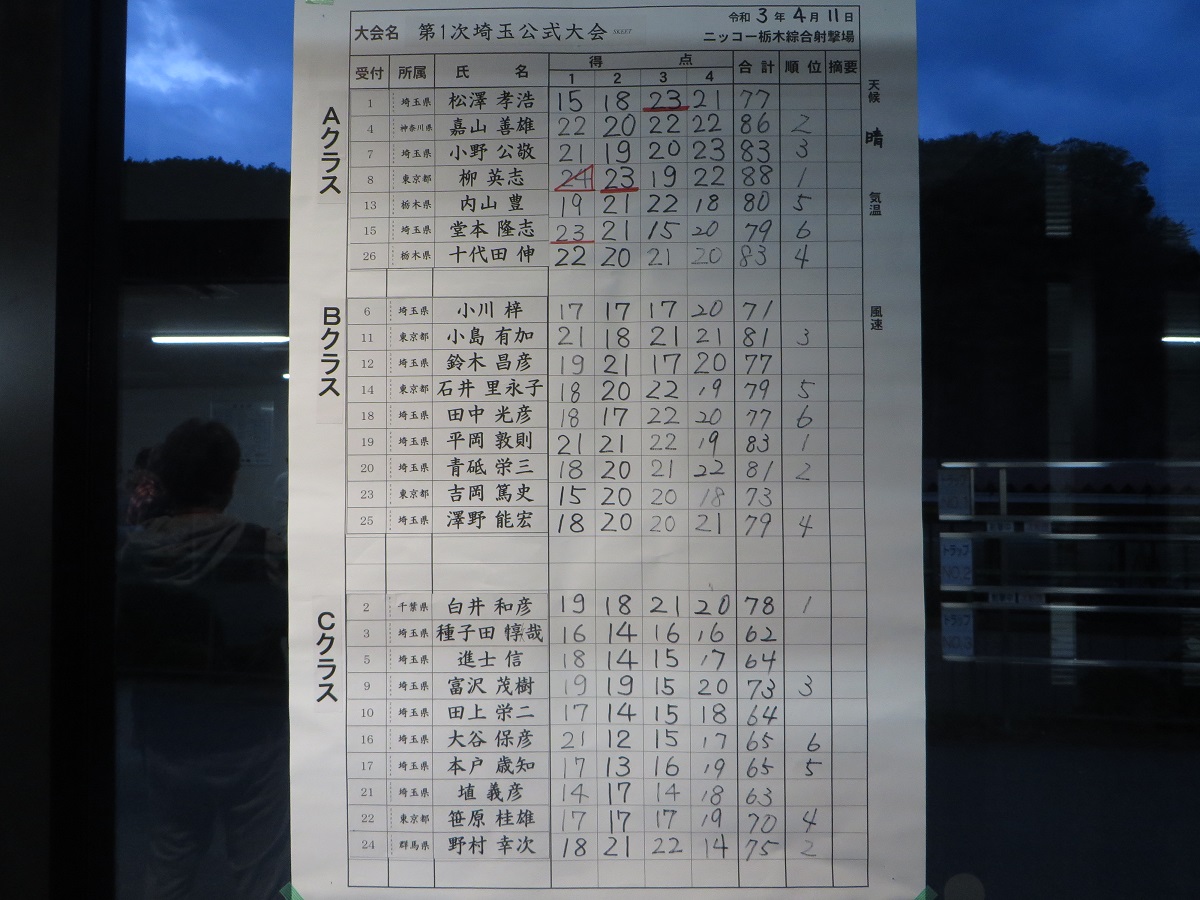 令和 3 年 4 月 11 日
大会名 第1次埼玉公式大会 SKEET ニッコー栃木綜合射撃場
受付 所属 氏名 得点 合計 順位 摘要
1 2 3 4
天候 晴
気温
風速
Aクラス
1 埼玉県 松澤 孝浩 15 18 23 21 77
4 神奈川県 嘉山 善雄 22 20 22 22 86 2
7 埼玉県 小野 公敬 21 19 20 23 83 3
8 東京都 柳 英志 24 23 19 22 88 1
13 栃木県 内山 豊 19 21 22 18 80 5
15 埼玉県 堂本 隆志 23 21 15 20 79 6
26 栃木県 十代田 伸 22 20 21 20 83 4
Bクラス
6 埼玉県 小川 梓 17 17 17 20 71
11 東京都 小島 有加 21 18 21 21 81 3
12 埼玉県 鈴木 昌彦 19 21 17 20 77
14 東京都 石井 里永子 18 20 22 19 79 5
18 埼玉県 田中 光彦 18 17 22 20 77 6
19 埼玉県 平岡 敦則 21 21 22 19 83 1
20 埼玉県 青砥 栄三 18 20 21 22 81 2
23 東京都 吉岡 篤史 15 20 20 18 73
25 埼玉県 澤野 能宏 18 20 20 21 79 4
Cクラス
2 千葉県 白井 和彦 19 18 21 20 78 1
3 埼玉県 種子田 惇哉 16 14 16 16 62
5 埼玉県 進士 信 18 14 15 17 64
9 埼玉県 富沢 茂樹 19 19 15 20 73 3
10 埼玉県 田上 栄二 17 14 15 18 64
16 埼玉県 大谷 保彦 21 12 15 17 65 6
17 埼玉県 本戸 歳知 17 13 16 19 65 5
21 埼玉県 埴 義彦 14 17 14 18 63
22 東京都 笹原 桂雄 17 17 17 19 70 4
24 群馬県 野村 幸次 18 21 22 14 75 2
トラップ
NO.2
トラップ
NO.3